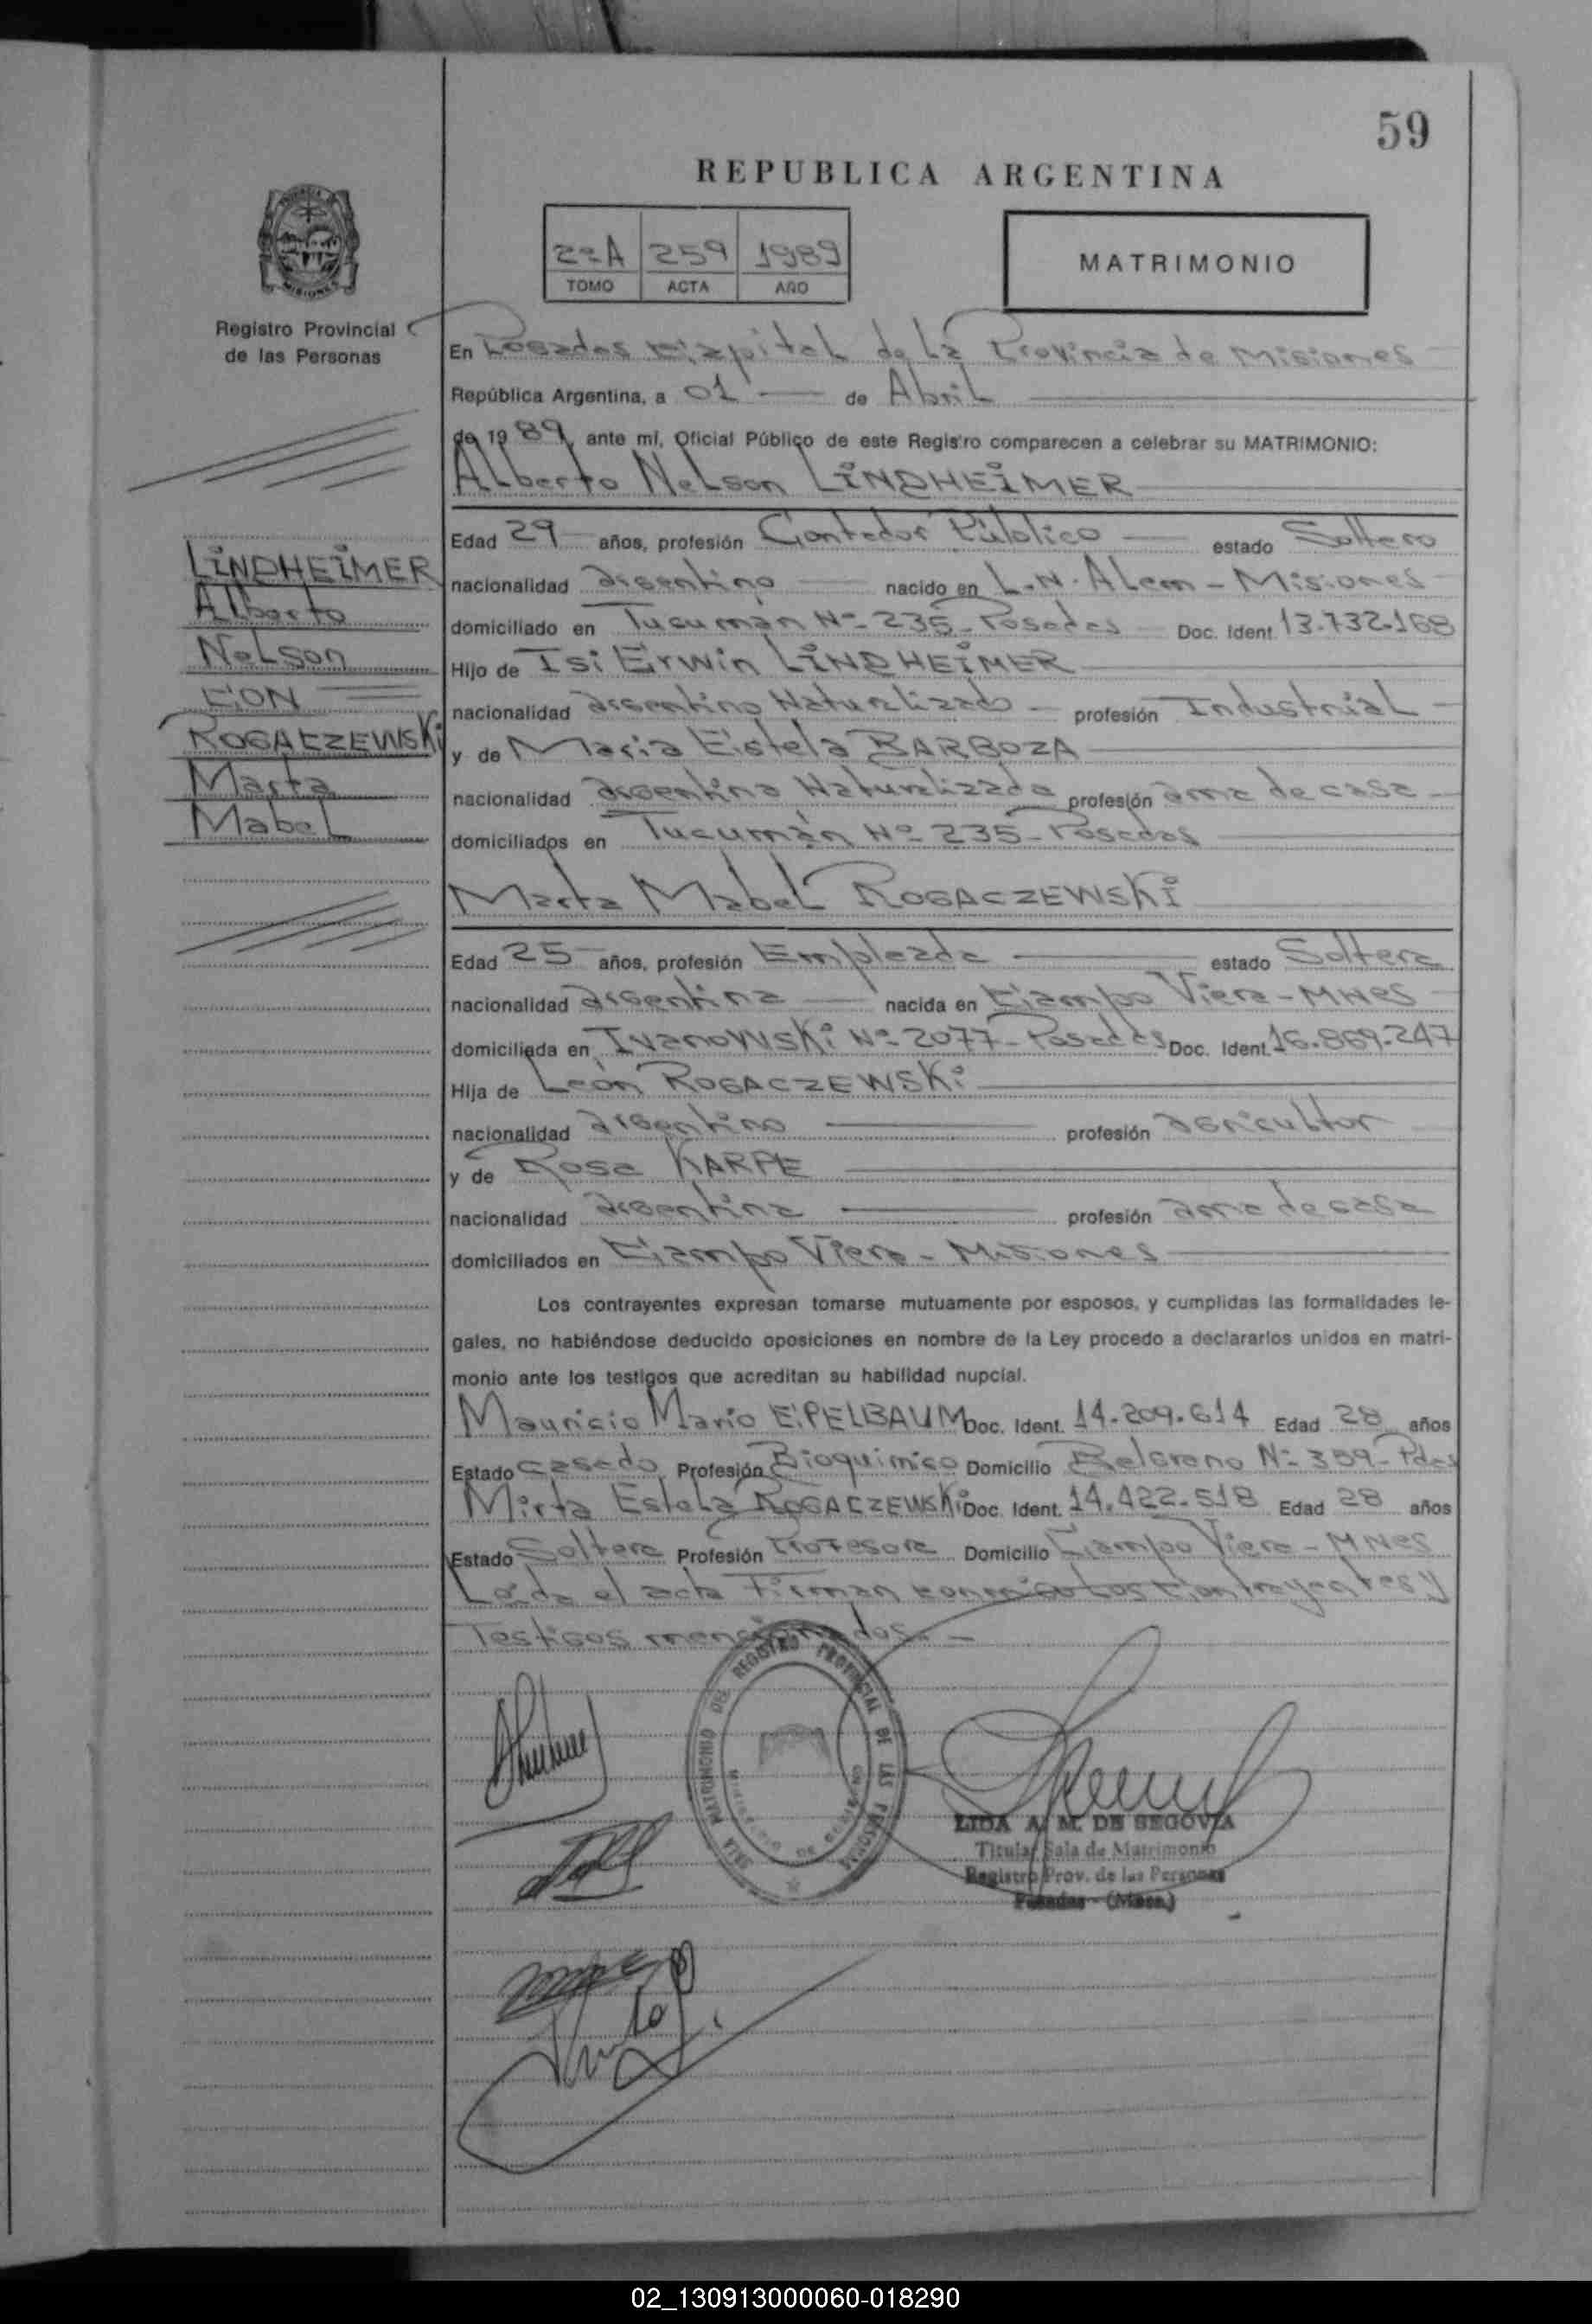 59
REPUBLICA ARGENTINA
2ºA 259 1989
TOMO ACTA AÑO
MATRIMONIO
Registro Provincial
de las Personas
En Posadas Capital de la Provincia de Misiones
República Argentina, a 01 de Abril
de 19 89, ante mí, Oficial Público de este Registro comparecen a celebrar su MATRIMONIO:
Alberto Nelson LINDHEIMER
LINDHEIMER
Alberto
Nelson
CON
ROGACZEWSKI
Marta
Mabel
Edad 29 años, profesión Contador Público estado Soltero
nacionalidad argentino nacido en L.N. Alem - Misiones
domiciliado en Tucumán Nº 235 - Posadas Doc. Ident. 13.732.168
Hijo de Isi Erwin LINDHEIMER
nacionalidad argentino Naturalizado profesión Industrial
y de Maria Estela BARBOZA
nacionalidad argentina Naturalizada profesión ama de casa
domiciliados en Tucumán Nº 235 - Posadas
Marta Mabel ROGACZEWSKI
Edad 25 años, profesión Empleada estado Soltera
nacionalidad argentina nacida en Campo Viera - Mnes
domiciliada en Ivanowski Nº 2077 - Posadas Doc. Ident. 16.869.247
Hija de León ROGACZEWSKI
nacionalidad argentino profesión agricultor
y de Rosa KARPE
nacionalidad argentina profesión ama de casa
domiciliados en Campo Viera - Misiones
Los contrayentes expresan tomarse mutuamente por esposos, y cumplidas las formalidades le-
gales, no habiéndose deducido oposiciones en nombre de la Ley procedo a declararlos unidos en matri-
monio ante los testigos que acreditan su habilidad nupcial.
Mauricio Mario EPELBAUM Doc. Ident. 14.209.614 Edad 28 años
Estado casado Profesión Bioquimico Domicilio Belgrano Nº 359 - Pdas
Mirta Estela ROGACZEWSKI Doc. Ident. 14.422.518 Edad 28 años
Estado Soltera Profesión Profesora Domicilio Campo Viera - Mnes
Leída el acta Firman conmigo los contrayentes y
Testigos mencionados. -
SALA MATRIMONIO DEL REGISTRO PROVINCIAL DE LAS PERSONAS
MINISTERIO DE GOBIERNO
LIDA A. M. DE SEGOVIA
Titular Sala de Matrimonio
Registro Prov. de las Personas
Posadas - (Mnes.)
02_130913000060-018290